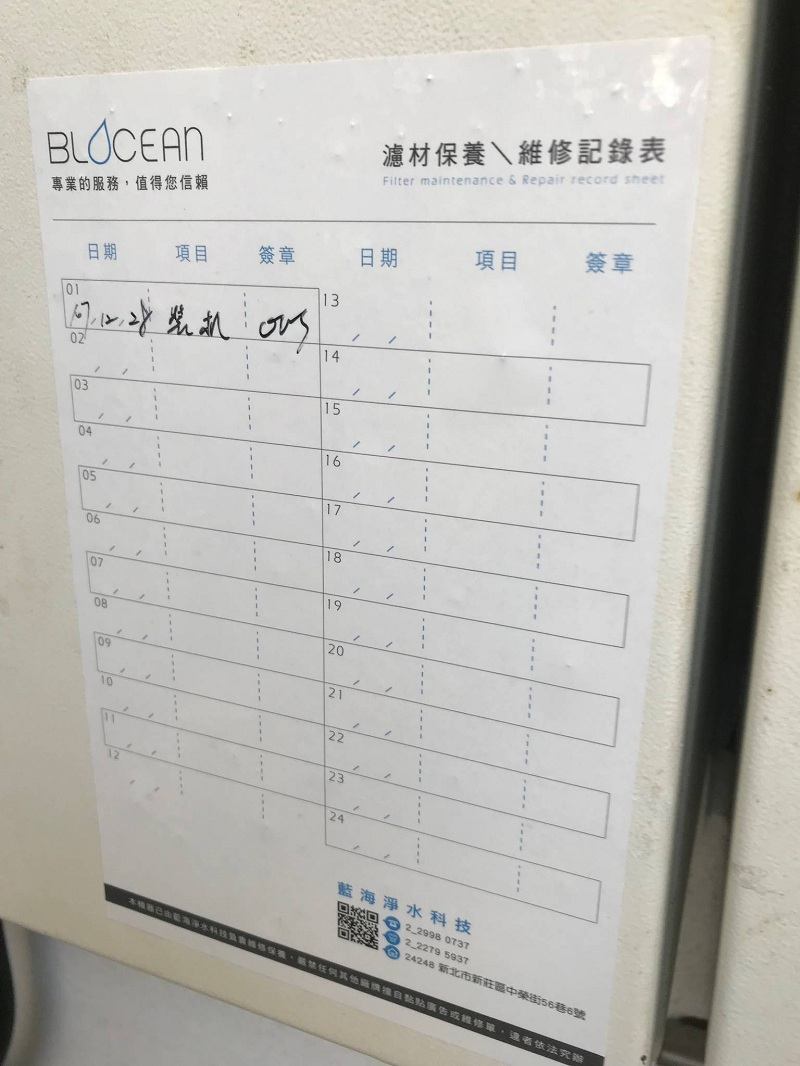 BLOCEAN
專業的服務，值得您信賴
濾材保養＼維修記錄表
Filter maintenance & Repair record sheet
日期 項目 簽章 日期 項目 簽章
01
107.12.28 裝机
02
03
04
05
06
07
08
09
10
11
12
13
14
15
16
17
18
19
20
21
22
23
24
藍海淨水科技
2_2998 0737
2_2279 5937
24248 新北市新莊區中榮街56巷6號
本機器已由藍海淨水科技負責維修保養，嚴禁任何其他廠牌擅自黏貼廣告或維修單，違者依法究辦